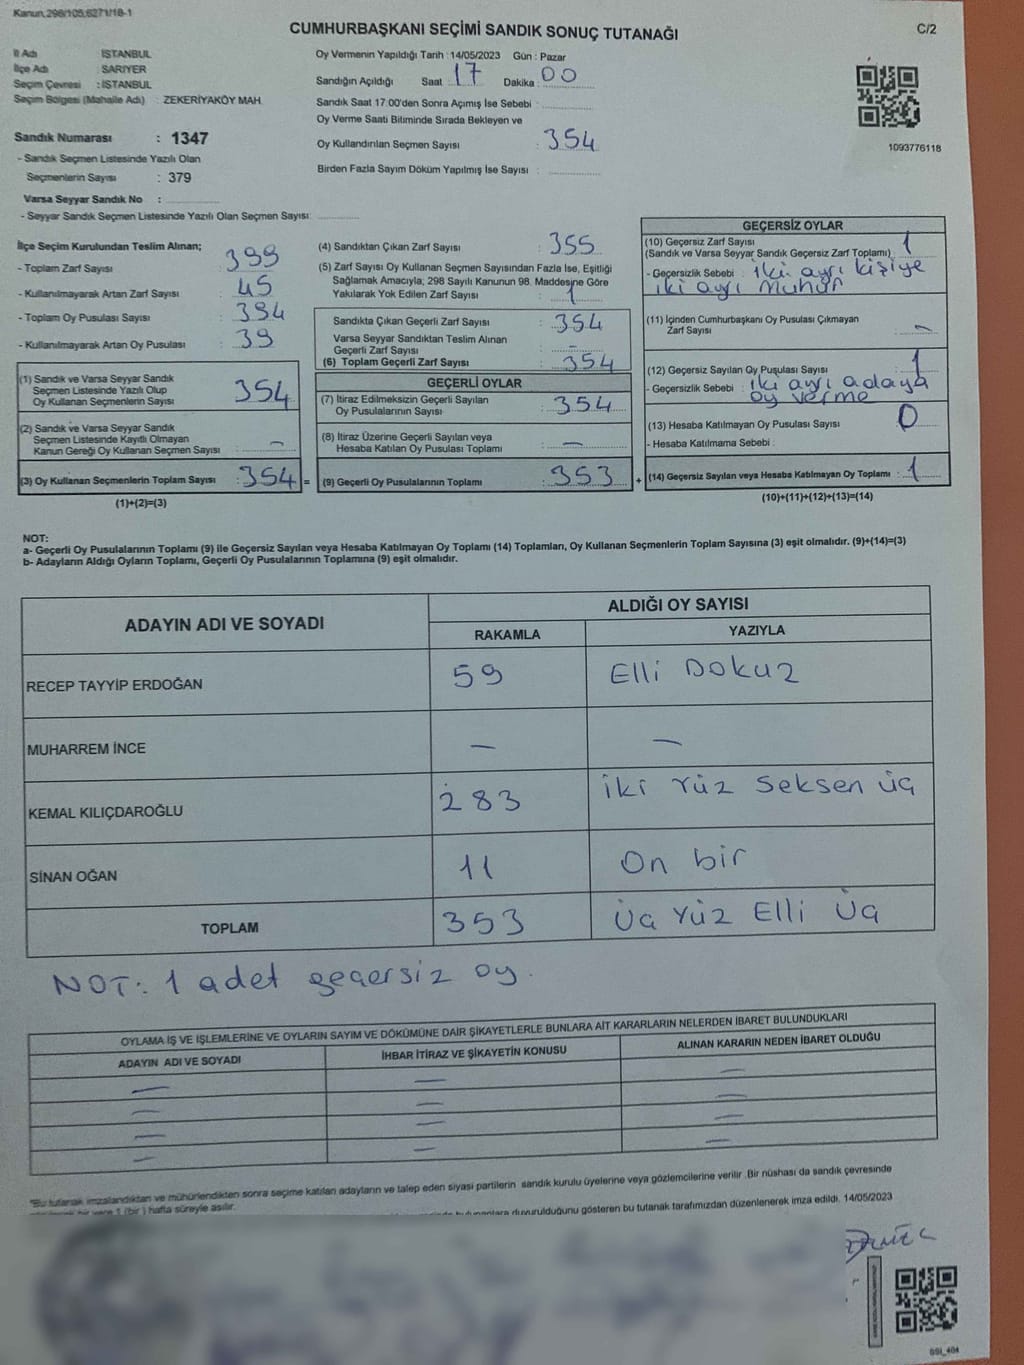 Kanun,298/105,6271/18-1
CUMHURBAŞKANI SEÇİMİ SANDIK SONUÇ TUTANAĞI
C/2
İl Adı : İSTANBUL
İlçe Adı : SARIYER
Seçim Çevresi : İSTANBUL
Seçim Bölgesi (Mahalle Adı) : ZEKERİYAKÖY MAH.
Sandık Numarası : 1347
- Sandık Seçmen Listesinde Yazılı Olan
Seçmenlerin Sayısı : 379
Varsa Seyyar Sandık No :
- Seyyar Sandık Seçmen Listesinde Yazılı Olan Seçmen Sayısı:
Oy Vermenin Yapıldığı Tarih : 14/05/2023 Gün : Pazar
Sandığın Açıldığı Saat 17 Dakika 00
Sandık Saat 17:00'den Sonra Açılmış İse Sebebi :
Oy Verme Saati Bitiminde Sırada Bekleyen ve
Oy Kullandırılan Seçmen Sayısı : 354
Birden Fazla Sayım Döküm Yapılmış İse Sayısı :
1093776118
İlçe Seçim Kurulundan Teslim Alınan;
- Toplam Zarf Sayısı : 399
- Kullanılmayarak Artan Zarf Sayısı : 45
- Toplam Oy Pusulası Sayısı : 394
- Kullanılmayarak Artan Oy Pusulası : 39
(1) Sandık ve Varsa Seyyar Sandık
Seçmen Listesinde Yazılı Olup
Oy Kullanan Seçmenlerin Sayısı : 354
(2) Sandık ve Varsa Seyyar Sandık
Seçmen Listesinde Kayıtlı Olmayan
Kanun Gereği Oy Kullanan Seçmen Sayısı : –
(3) Oy Kullanan Seçmenlerin Toplam Sayısı : 354 =
(1)+(2)=(3)
(4) Sandıktan Çıkan Zarf Sayısı : 355
(5) Zarf Sayısı Oy Kullanan Seçmen Sayısından Fazla İse, Eşitliği
Sağlamak Amacıyla; 298 Sayılı Kanunun 98. Maddesine Göre
Yakılarak Yok Edilen Zarf Sayısı : 1
Sandıkta Çıkan Geçerli Zarf Sayısı : 354
Varsa Seyyar Sandıktan Teslim Alınan
Geçerli Zarf Sayısı : –
(6) Toplam Geçerli Zarf Sayısı : 354
GEÇERLİ OYLAR
(7) İtiraz Edilmeksizin Geçerli Sayılan
Oy Pusulalarının Sayısı : 354
(8) İtiraz Üzerine Geçerli Sayılan veya
Hesaba Katılan Oy Pusulası Toplamı : –
(9) Geçerli Oy Pusulalarının Toplamı : 353 +
GEÇERSİZ OYLAR
(10) Geçersiz Zarf Sayısı : 1
(Sandık ve Varsa Seyyar Sandık Geçersiz Zarf Toplamı)
- Geçersizlik Sebebi : iki ayrı kişiye
iki ayrı mühür
(11) İçinden Cumhurbaşkanı Oy Pusulası Çıkmayan
Zarf Sayısı : –
(12) Geçersiz Sayılan Oy Pusulası Sayısı : 1
- Geçersizlik Sebebi : iki ayrı adaya
oy verme
(13) Hesaba Katılmayan Oy Pusulası Sayısı : 0
- Hesaba Katılmama Sebebi :
(14) Geçersiz Sayılan veya Hesaba Katılmayan Oy Toplamı : 1
(10)+(11)+(12)+(13)=(14)
NOT:
a- Geçerli Oy Pusulalarının Toplamı (9) ile Geçersiz Sayılan veya Hesaba Katılmayan Oy Toplamı (14) Toplamları, Oy Kullanan Seçmenlerin Toplam Sayısına (3) eşit olmalıdır. (9)+(14)=(3)
b- Adayların Aldığı Oyların Toplamı, Geçerli Oy Pusulalarının Toplamına (9) eşit olmalıdır.
ADAYIN ADI VE SOYADI ALDIĞI OY SAYISI
RAKAMLA YAZIYLA
RECEP TAYYİP ERDOĞAN 59 Elli Dokuz
MUHARREM İNCE – –
KEMAL KILIÇDAROĞLU 283 iki Yüz Seksen üç
SİNAN OĞAN 11 On bir
TOPLAM 353 Üç Yüz Elli Üç
NOT: 1 adet geçersiz oy.
OYLAMA İŞ VE İŞLEMLERİNE VE OYLARIN SAYIM VE DÖKÜMÜNE DAİR ŞİKAYETLERLE BUNLARA AİT KARARLARIN NELERDEN İBARET BULUNDUKLARI
ADAYIN ADI VE SOYADI İHBAR İTİRAZ VE ŞİKAYETİN KONUSU ALINAN KARARIN NEDEN İBARET OLDUĞU
– – –
– – –
– – –
– – –
"Bu tutanak imzalandıktan ve mühürlendikten sonra seçime katılan adayların ve talep eden siyasi partilerin sandık kurulu üyelerine veya gözlemcilerine verilir .Bir nüshası da sandık çevresinde
bir yere 1 (bir ) hafta süreyle asılır.
bulunanlara duyurulduğunu gösteren bu tutanak tarafımızdan düzenlenerek imza edildi. 14/05/2023